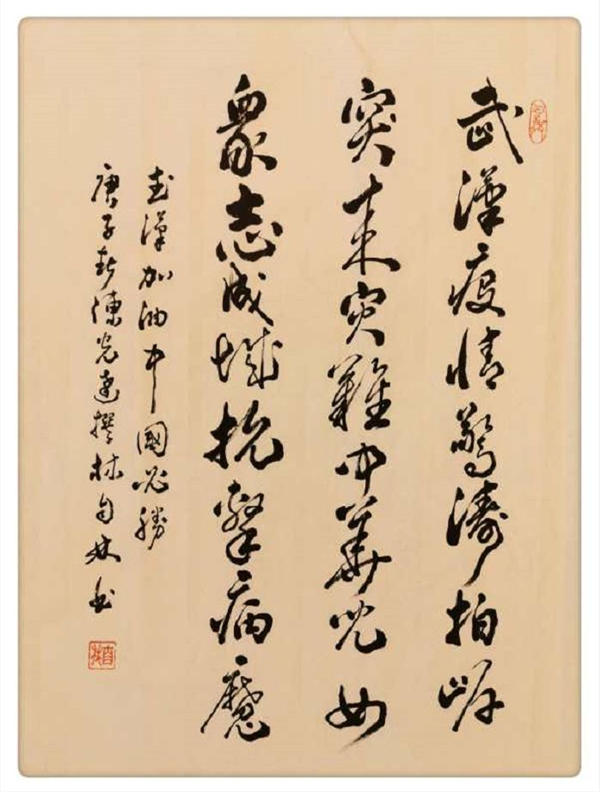 武漢疫情驚濤拍岸
突来灾難中華兒女
衆志成城抗擊病魔
武漢加油中國必勝
庚子陳光撰林自书